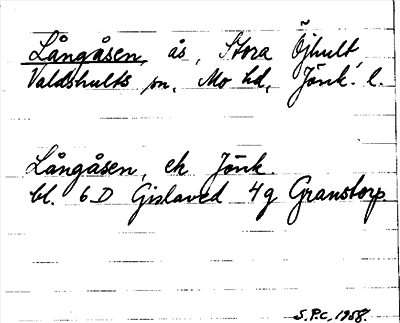 Långåsen, ås, Stora Öjhult,
Valdshults sn, Mo hd, Jönk. l.
Långåsen, ek Jönk.
bl. 6D Gislaved 4g Granstorp.
S.P.C. 1958.